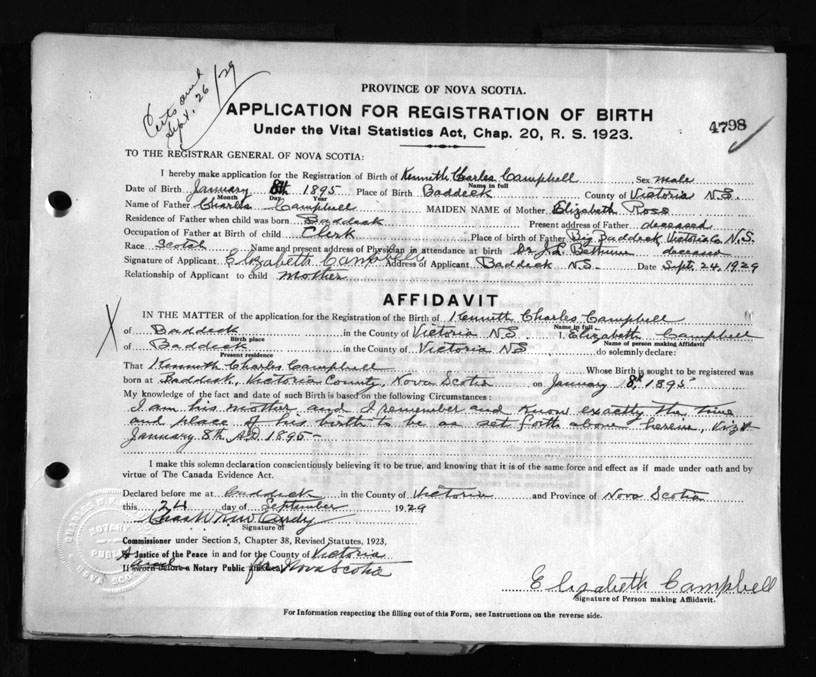 Sept. 26/29
PROVINCE OF NOVA SCOTIA.
APPLICATION FOR REGISTRATION OF BIRTH
Under the Vital Statistics Act, Chap. 20, R. S. 1923.
4798
TO THE REGISTRAR GENERAL OF NOVA SCOTIA:
I hereby make application for the Registration of Birth of Kenneth Charles Campbell Sex male
Name in full
Date of Birth January 8th 1895 Place of Birth Baddeck County of Victoria N.S.
Month Day Year
Name of Father Charles Campbell MAIDEN NAME of Mother Elizabeth Ross
Residence of Father when child was born Baddeck Present address of Father deceased
Occupation of Father at Birth of child Clerk Place of birth of Father Big Baddeck Victoria Co N.S.
Race Scotch Name and present address of Physician in attendance at birth Dr J. L. Bethune deceased
Signature of Applicant Elizabeth Campbell Address of Applicant Baddeck N.S. Date Sept. 24, 1929
Relationship of Applicant to child Mother
AFFIDAVIT
IN THE MATTER of the application for the Registration of the Birth of Kenneth Charles Campbell
Name in full
of Baddeck in the County of Victoria N.S. I, Elizabeth Campbell
Birth place Name of person making Affidavit
of Baddeck in the County of Victoria N.S. do solemnly declare:
Present residence
That Kenneth Charles Campbell Whose Birth is sought to be registered was
born at Baddeck, Victoria County, Nova Scotia on January 8th 1895
My knowledge of the fact and date of such Birth is based on the following Circumstances:
I am his mother and I remember and know exactly the time
and place of his birth to be as set forth above herein, Vizt
January 8th A.D. 1895-
I make this solemn declaration conscientiously believing it to be true, and knowing that it is of the same force and effect as if made under oath and by
virtue of The Canada Evidence Act.
Declared before me at Baddeck in the County of Victoria and Province of Nova Scotia
this 24 day of September 1929
Signature of
Commissioner under Section 5, Chapter 38, Revised Statutes, 1923,
A Justice of the Peace in and for the County of Victoria
If sworn before a Notary Public for Nova Scotia
Elizabeth Campbell
Signature of Person making Affidavit.
For Information respecting the filling out of this Form, see Instructions on the reverse side.